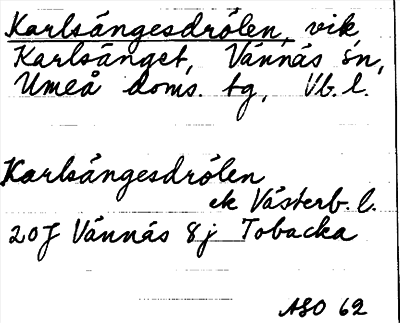 Karlsängesdrölen, vik,
Karlsänget, Vännäs sn,
Umeå doms. tg, Vb. l.
Karlsängesdrölen
ek Västerb. l.
20J Vännäs 8j Tobacka
ASO 62